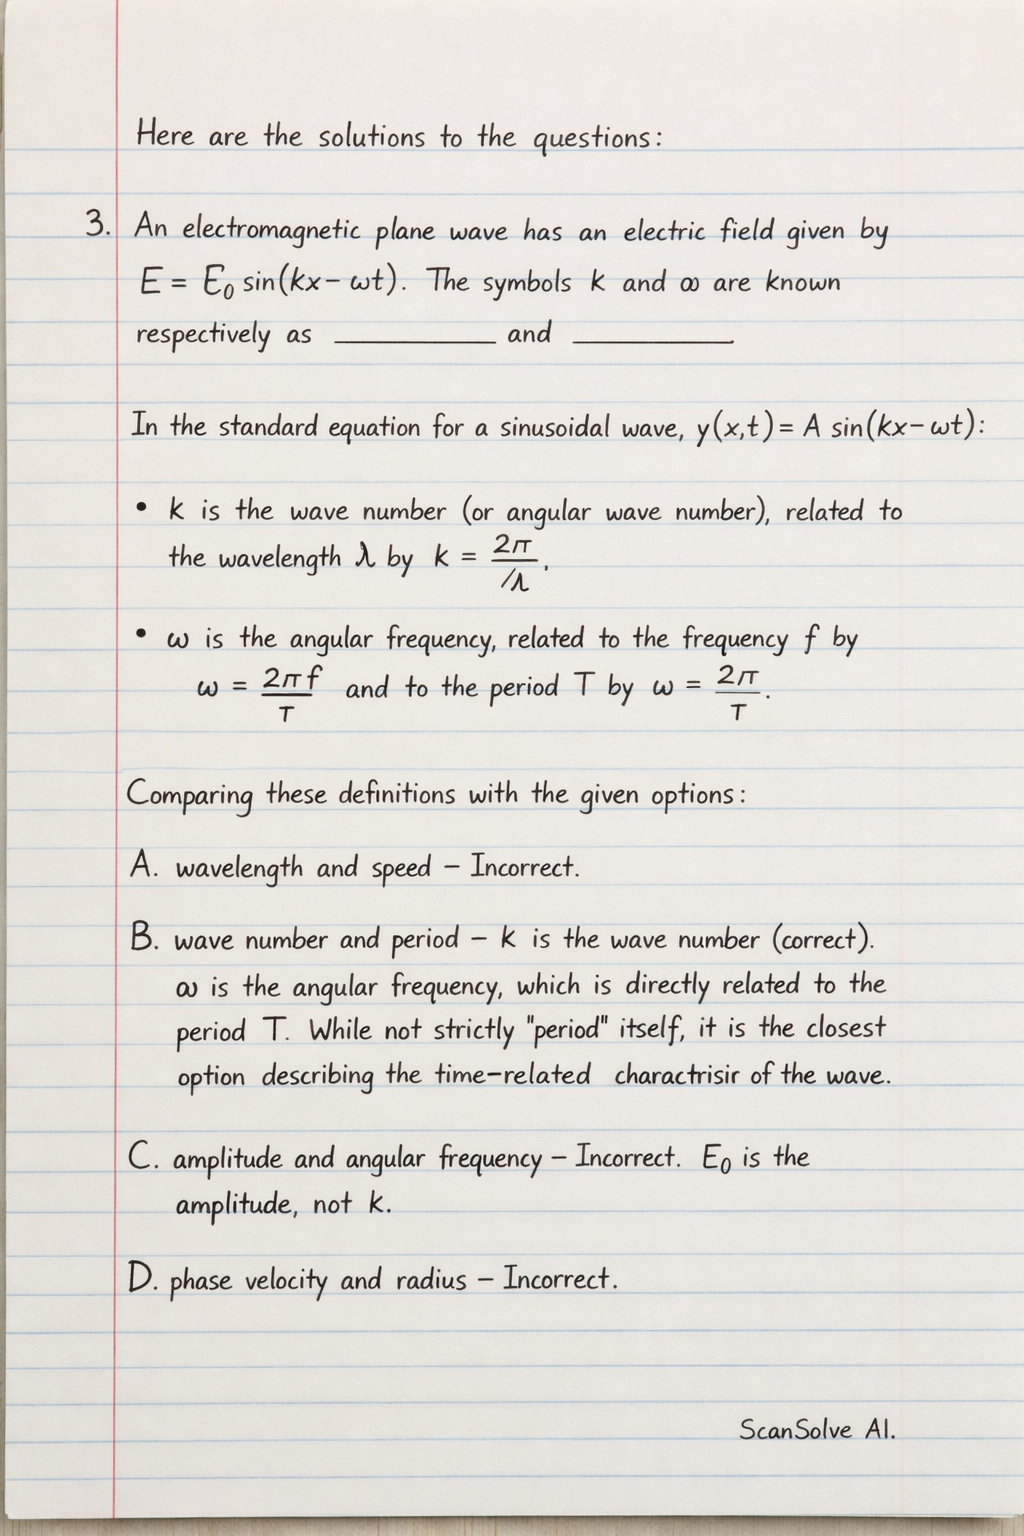 Here are the solutions to the questions:
3. An electromagnetic plane wave has an electric field given by
E = E₀ sin(kx − ωt). The symbols k and ∞ are known
respectively as ____________ and ____________
In the standard equation for a sinusoidal wave, y(x,t) = A sin(kx − ωt):
• k is the wave number (or angular wave number), related to
the wavelength λ by k = 2π/λ.
• ω is the angular frequency, related to the frequency f by
ω = 2πf/T and to the period T by ω = 2π/T.
Comparing these definitions with the given options:
A. wavelength and speed – Incorrect.
B. wave number and period – k is the wave number (correct).
ω is the angular frequency, which is directly related to the
period T. While not strictly "period" itself, it is the closest
option describing the time-related charactrisir of the wave.
C. amplitude and angular frequency – Incorrect. E₀ is the
amplitude, not k.
D. phase velocity and radius – Incorrect.
ScanSolve AI.